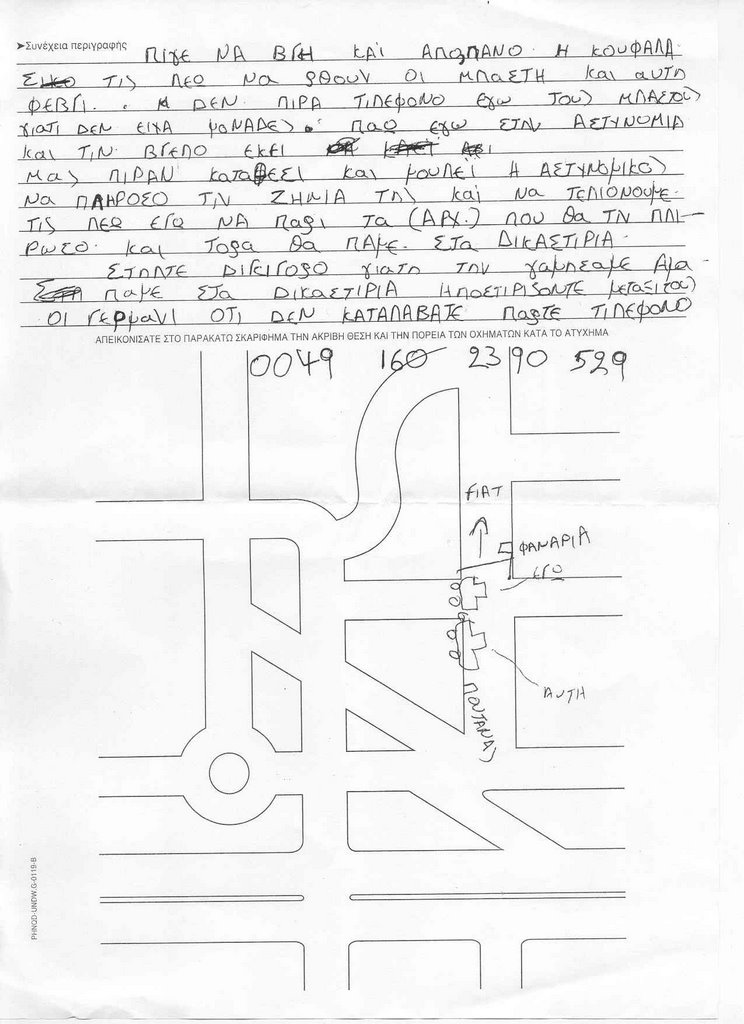 ➤Συνέχεια περιγραφής ΠΙΓΕ ΝΑ ΒΓΗ ΚΑΙ ΑΠΟΠΑΝΟ. Η ΚΟΥΦΑΛΑ.
ΤΙΣ ΛΕΟ ΝΑ ρθουν ΟΙ ΜΠΑΣΤΗ και αυτη
ΦΕΒΓΙ. ΔΕΝ ΠΙΡΑ ΤΙΛΕΦΟΝΟ εγω ΤΟΥς ΜΠΑΣΤΟΥς
γιατι ΔΕΝ ΕΙΧΑ ΜΟΝΑΔΕς. Παο εγω ΣΤΗΝ ΑΣΤΥΝΟΜΙΑ
Και ΤΙΝ ΒΓΕΠΟ ΕΚΕΙ
Μας ΠΙΡΑΝ καταΘΕΣΙ και μουλεϊ Η ΑΣΤΥΝΟΜΙΚΟς
ΝΑ ΠΛΗΡΟΣΟ ΤΙΝ ΖΗΜΙΑ ΤΗς και να ΤΕΛΙΟΝΟΥΜΕ.
ΤΙς ΛΕΟ ΕΓΟ ΝΑ Παρι ΤΑ (ΑΡΧ.) ΠΟΥ Θα ΤΝ ΠΛΙ-
ΡΩΣΟ. και ΤΟρα Θα ΠΑΜΕ. ΣΤΑ ΔΙΚΑΣΤΙΡΙΑ.
ΣΤΙΛΤΕ ΔΙΓΙΓΟΡΟ γιατι ΤΗΝ γαμησαμε Αμα.
παμε ΣΤΑ ΔΙΚΑΣΤΙΡΙΑ ΗΠΟΣΤΙΡΙΖΟΝΤΕ μεταξιτους
ΟΙ ΓΕΡμανι ΟΤΙ ΔΕΝ ΚΑΤΑΛΑΒΑΤΕ ΠαρΤΕ ΤΙΛΕΦΟΝΟ
ΑΠΕΙΚΟΝΙΣΑΤΕ ΣΤΟ ΠΑΡΑΚΑΤΩ ΣΚΑΡΙΦΗΜΑ ΤΗΝ ΑΚΡΙΒΗ ΘΕΣΗ ΚΑΙ ΤΗΝ ΠΟΡΕΙΑ ΤΩΝ ΟΧΗΜΑΤΩΝ ΚΑΤΑ ΤΟ ΑΤΥΧΗΜΑ
0049 160 23 90 529
FIAT
ΦΑΝΑΡΙΑ
ΕΓΟ
ΑΥΤΗ
ΠΟΥΤΑΝΑς
PHNQD-UNDW.G-0119-B